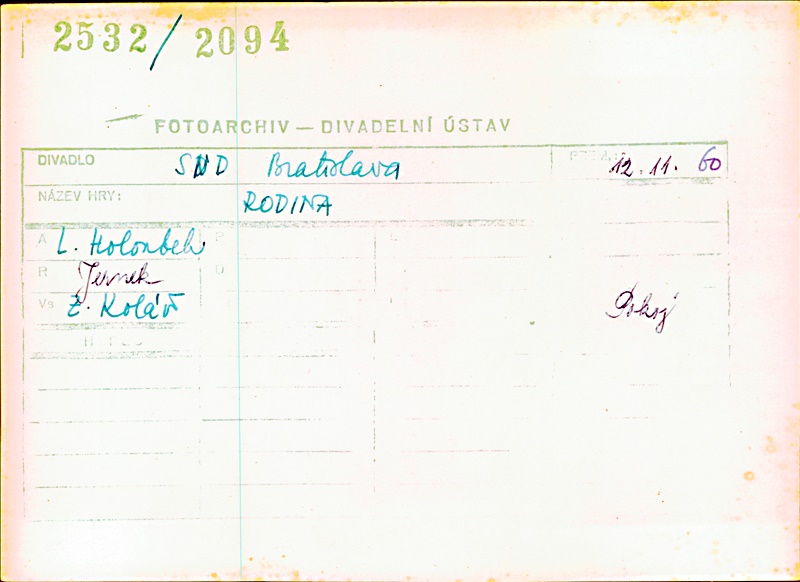 2532/2094
FOTOARCHIV — DIVADELNÍ ÚSTAV
DIVADLO SND Bratislava 12.11. 60
NÁZEV HRY: RODINA
A L. Holoubek P
R Jernek O
Vs Z. Kolář Pokoj